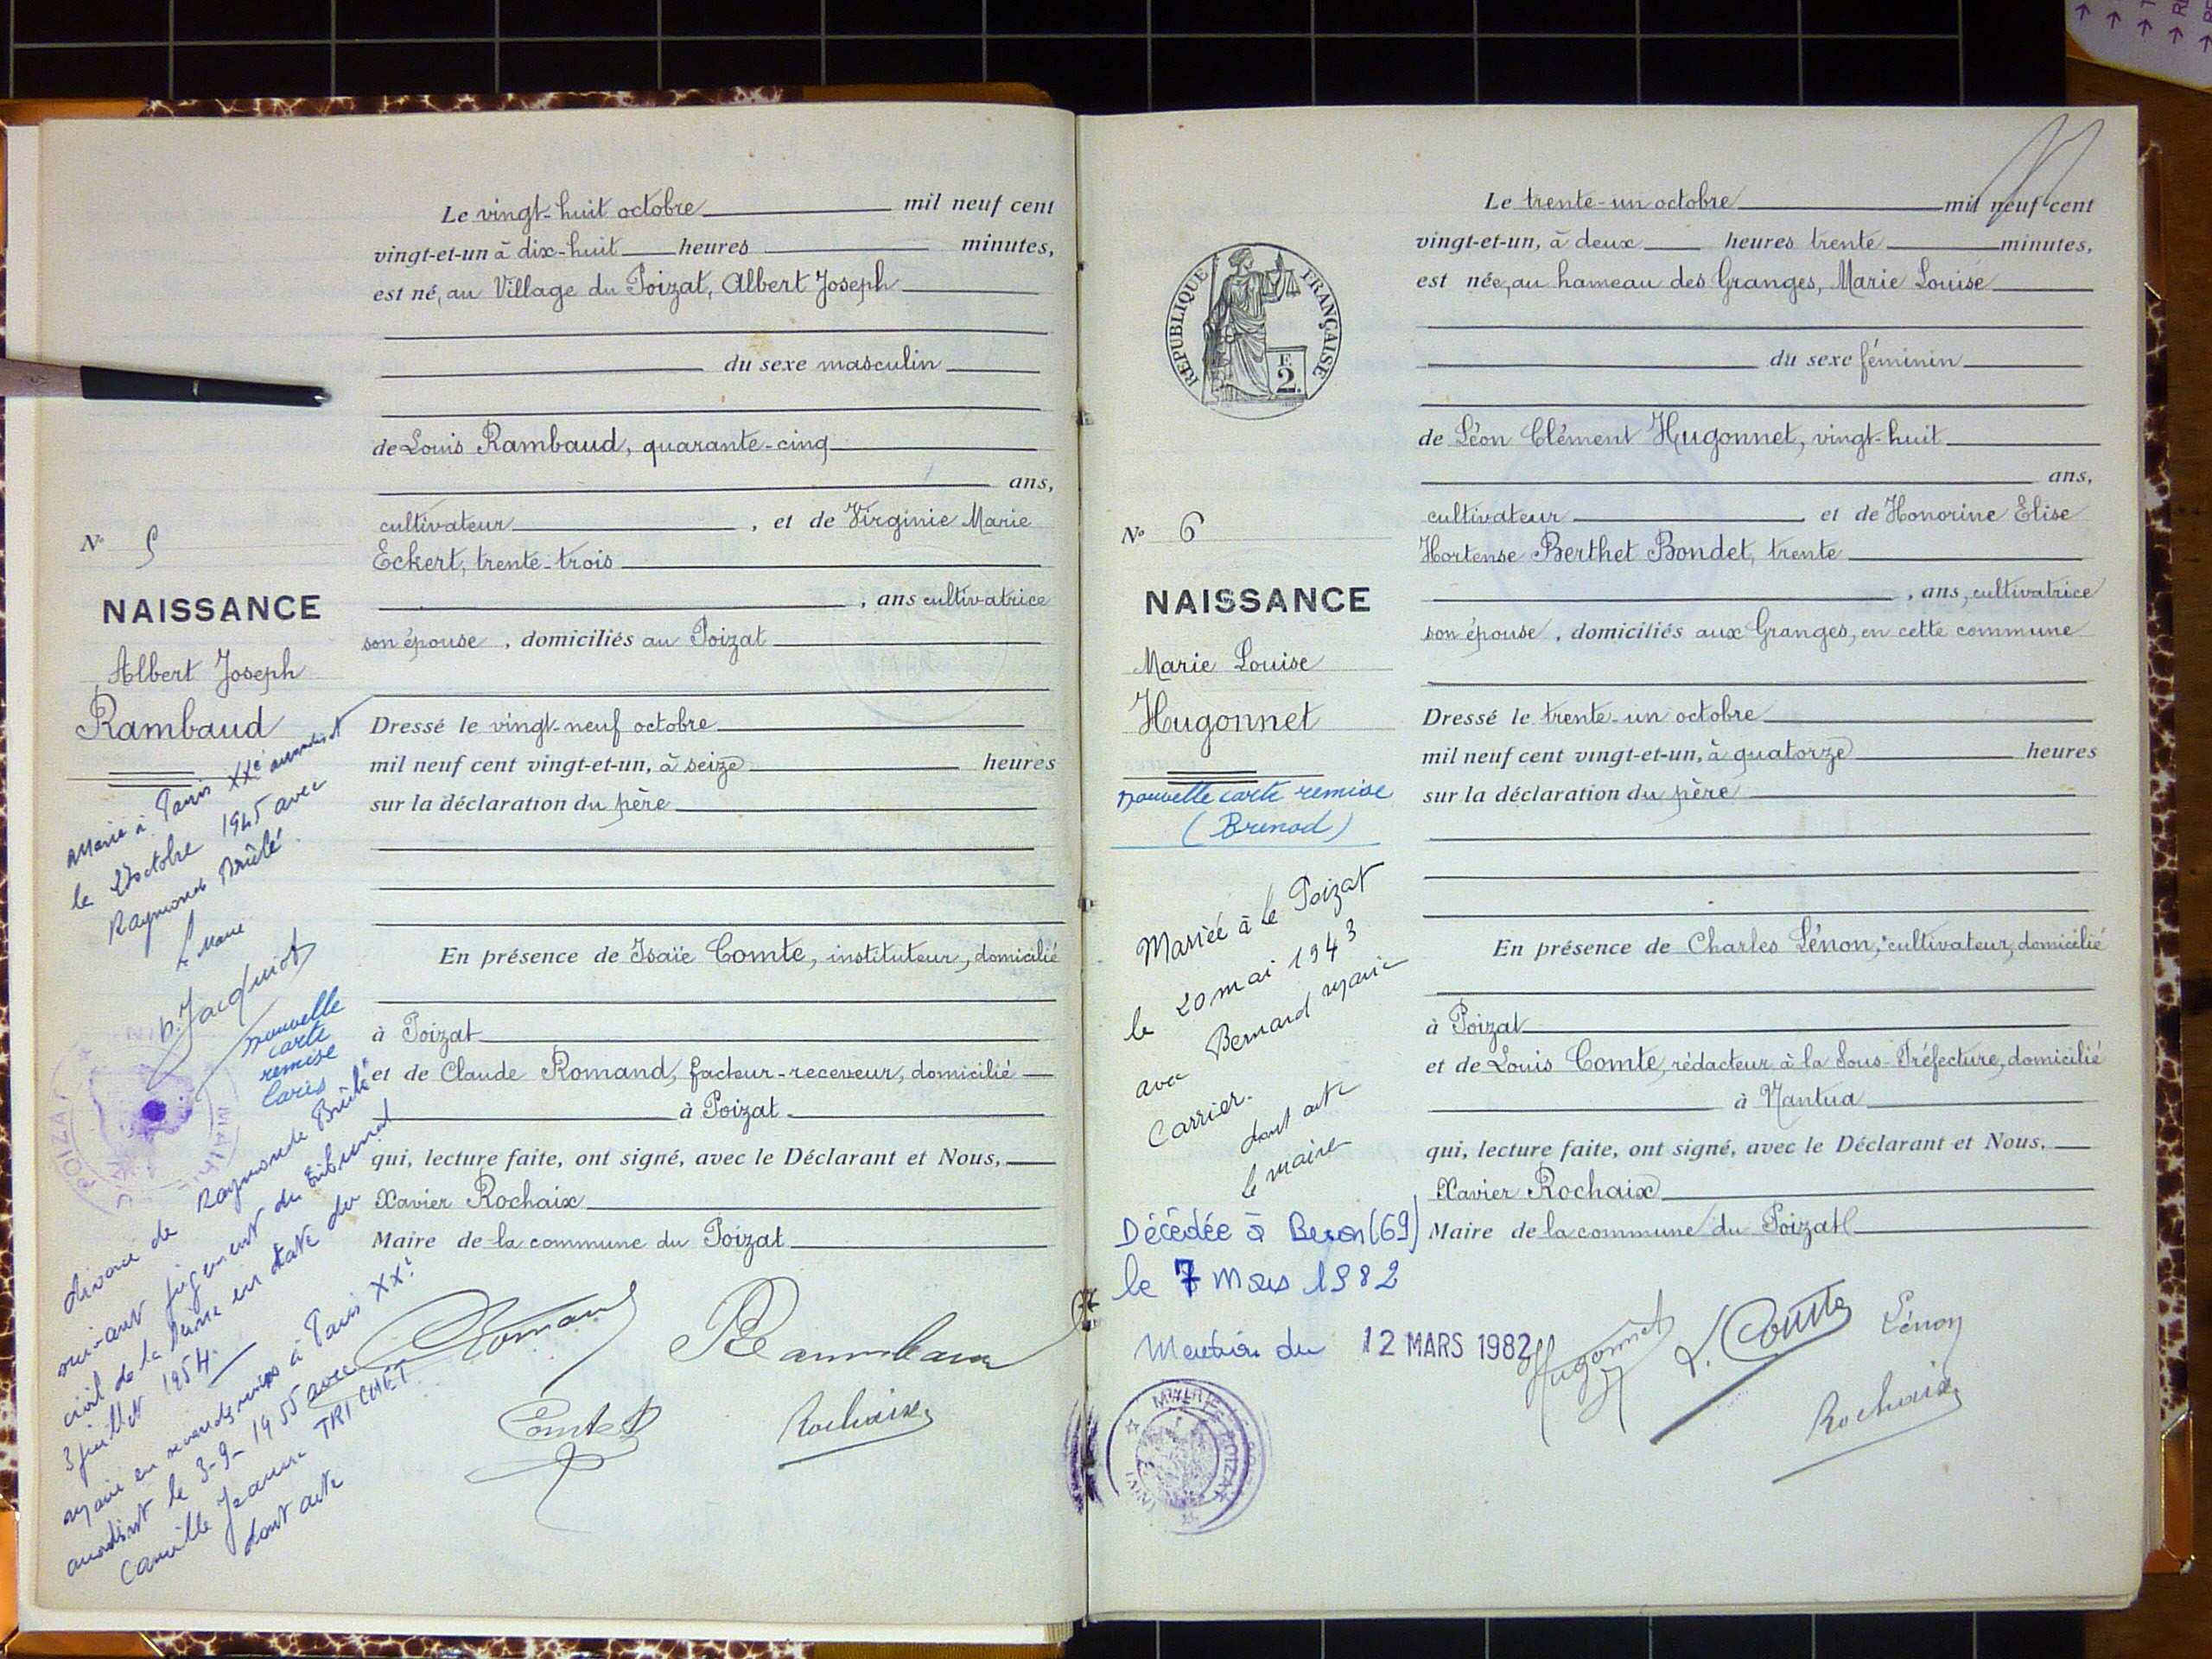 Le vingt-huit octobre mil neuf cent
vingt-et-un à dix-huit heures minutes,
est né, au Village du Poizat, Albert Joseph
du sexe masculin
de Louis Rambaud, quarante-cinq
ans,
cultivateur , et de Virginie Marie
Eckert, trente-trois
, ans cultivatrice
son épouse , domiciliés au Poizat
Dressé le vingt-neuf octobre
mil neuf cent vingt-et-un, à seize heures
sur la déclaration du père
En présence de Isaïe Comte, instituteur, domicilié
à Poizat
et de Claude Romand, facteur-receveur, domicilié
à Poizat
qui, lecture faite, ont signé, avec le Déclarant et Nous,
Xavier Rochaix
Maire de la commune du Poizat
Romand
Rambaud
Comte
Rochaix
N° 5
NAISSANCE
Albert Joseph
Rambaud
Marié à Paris XXe arrondisst
le octobre 1945 avec
Raymonde Brûlé.
Le Maire
P. Jacquiot
nouvelle
carte
remise
Paris
POIZAT
divorcé de Raymonde Brûlé
suivant jugement du tribunal
civil de la Seine en date du
3 juillet 1954.
marié en secondes noces à Paris XXe
arrondisst le 3-9-1955 avec
Camille Jeanne TRICHET
dont acte
Le trente-un octobre mil neuf cent
vingt-et-un, à deux heures trente minutes,
est née, au hameau des Granges, Marie Louise
du sexe féminin
de Léon Clément Hugonnet, vingt-huit
ans,
cultivateur et de Honorine Elise
Hortense Berthet Bondet, trente
, ans, cultivatrice
son épouse , domiciliés aux Granges, en cette commune
Dressé le trente-un octobre
mil neuf cent vingt-et-un, à quatorze heures
sur la déclaration du père
En présence de Charles Lénon, cultivateur, domicilié
à Poizat
et de Louis Comte, rédacteur à la Sous-Préfecture, domicilié
à Nantua
qui, lecture faite, ont signé, avec le Déclarant et Nous,
Xavier Rochaix
Maire de la commune du Poizat
Hugonnet
L. Comte
Lénon
Rochaix
RÉPUBLIQUE FRANÇAISE
F.
2.
N° 6
NAISSANCE
Marie Louise
Hugonnet
nouvelle carte remise
(Brenod)
Mariée à le Poizat
le 20 mai 1943
avec Bernard Marie
Carrier.
dont acte
le maire
Décédée à Beron (69)
le 7 Mars 1982
Mention du 12 MARS 1982
MAIRIE POIZAT